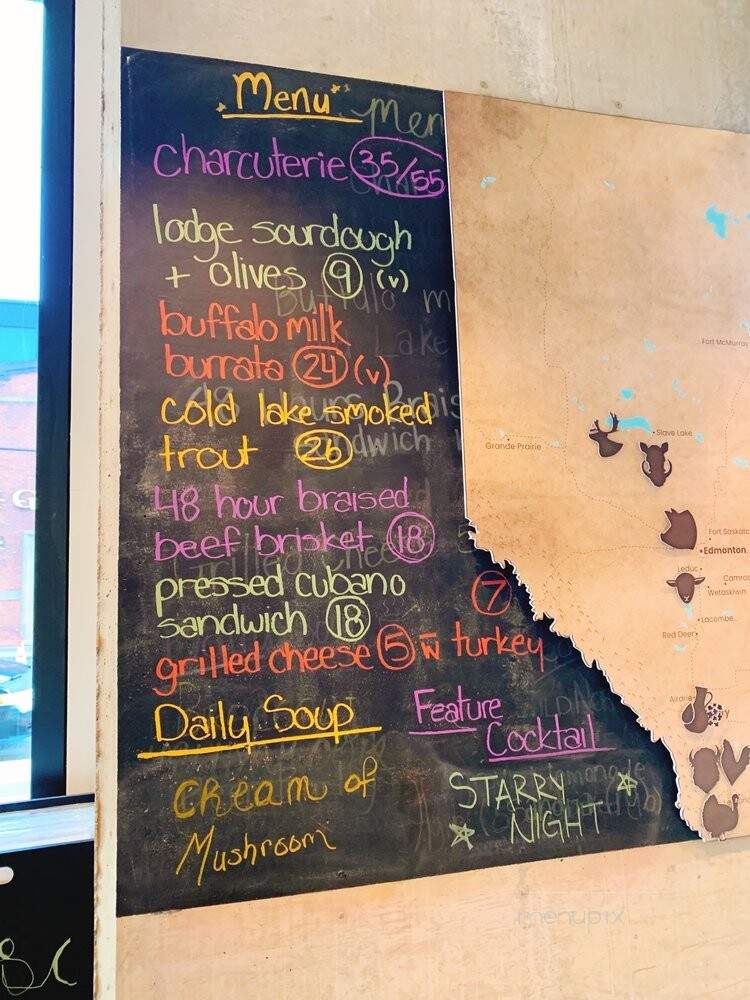 Menu
charcuterie 35/55
lodge sourdough
+ olives 9 (v)
buffalo milk
burrata 24 (v)
cold lake smoked
trout 26
48 hour braised
beef brisket 18
pressed cubano
sandwich 18
7
grilled cheese 5 w turkey
Daily Soup
cream of
Mushroom
Feature
Cocktail
STARRY
NIGHT
Fort McMurray
Grande Prairie
Slave Lake
Edmonton
Leduc
Wetaskiwin
Lacombe
Red Deer
menupix